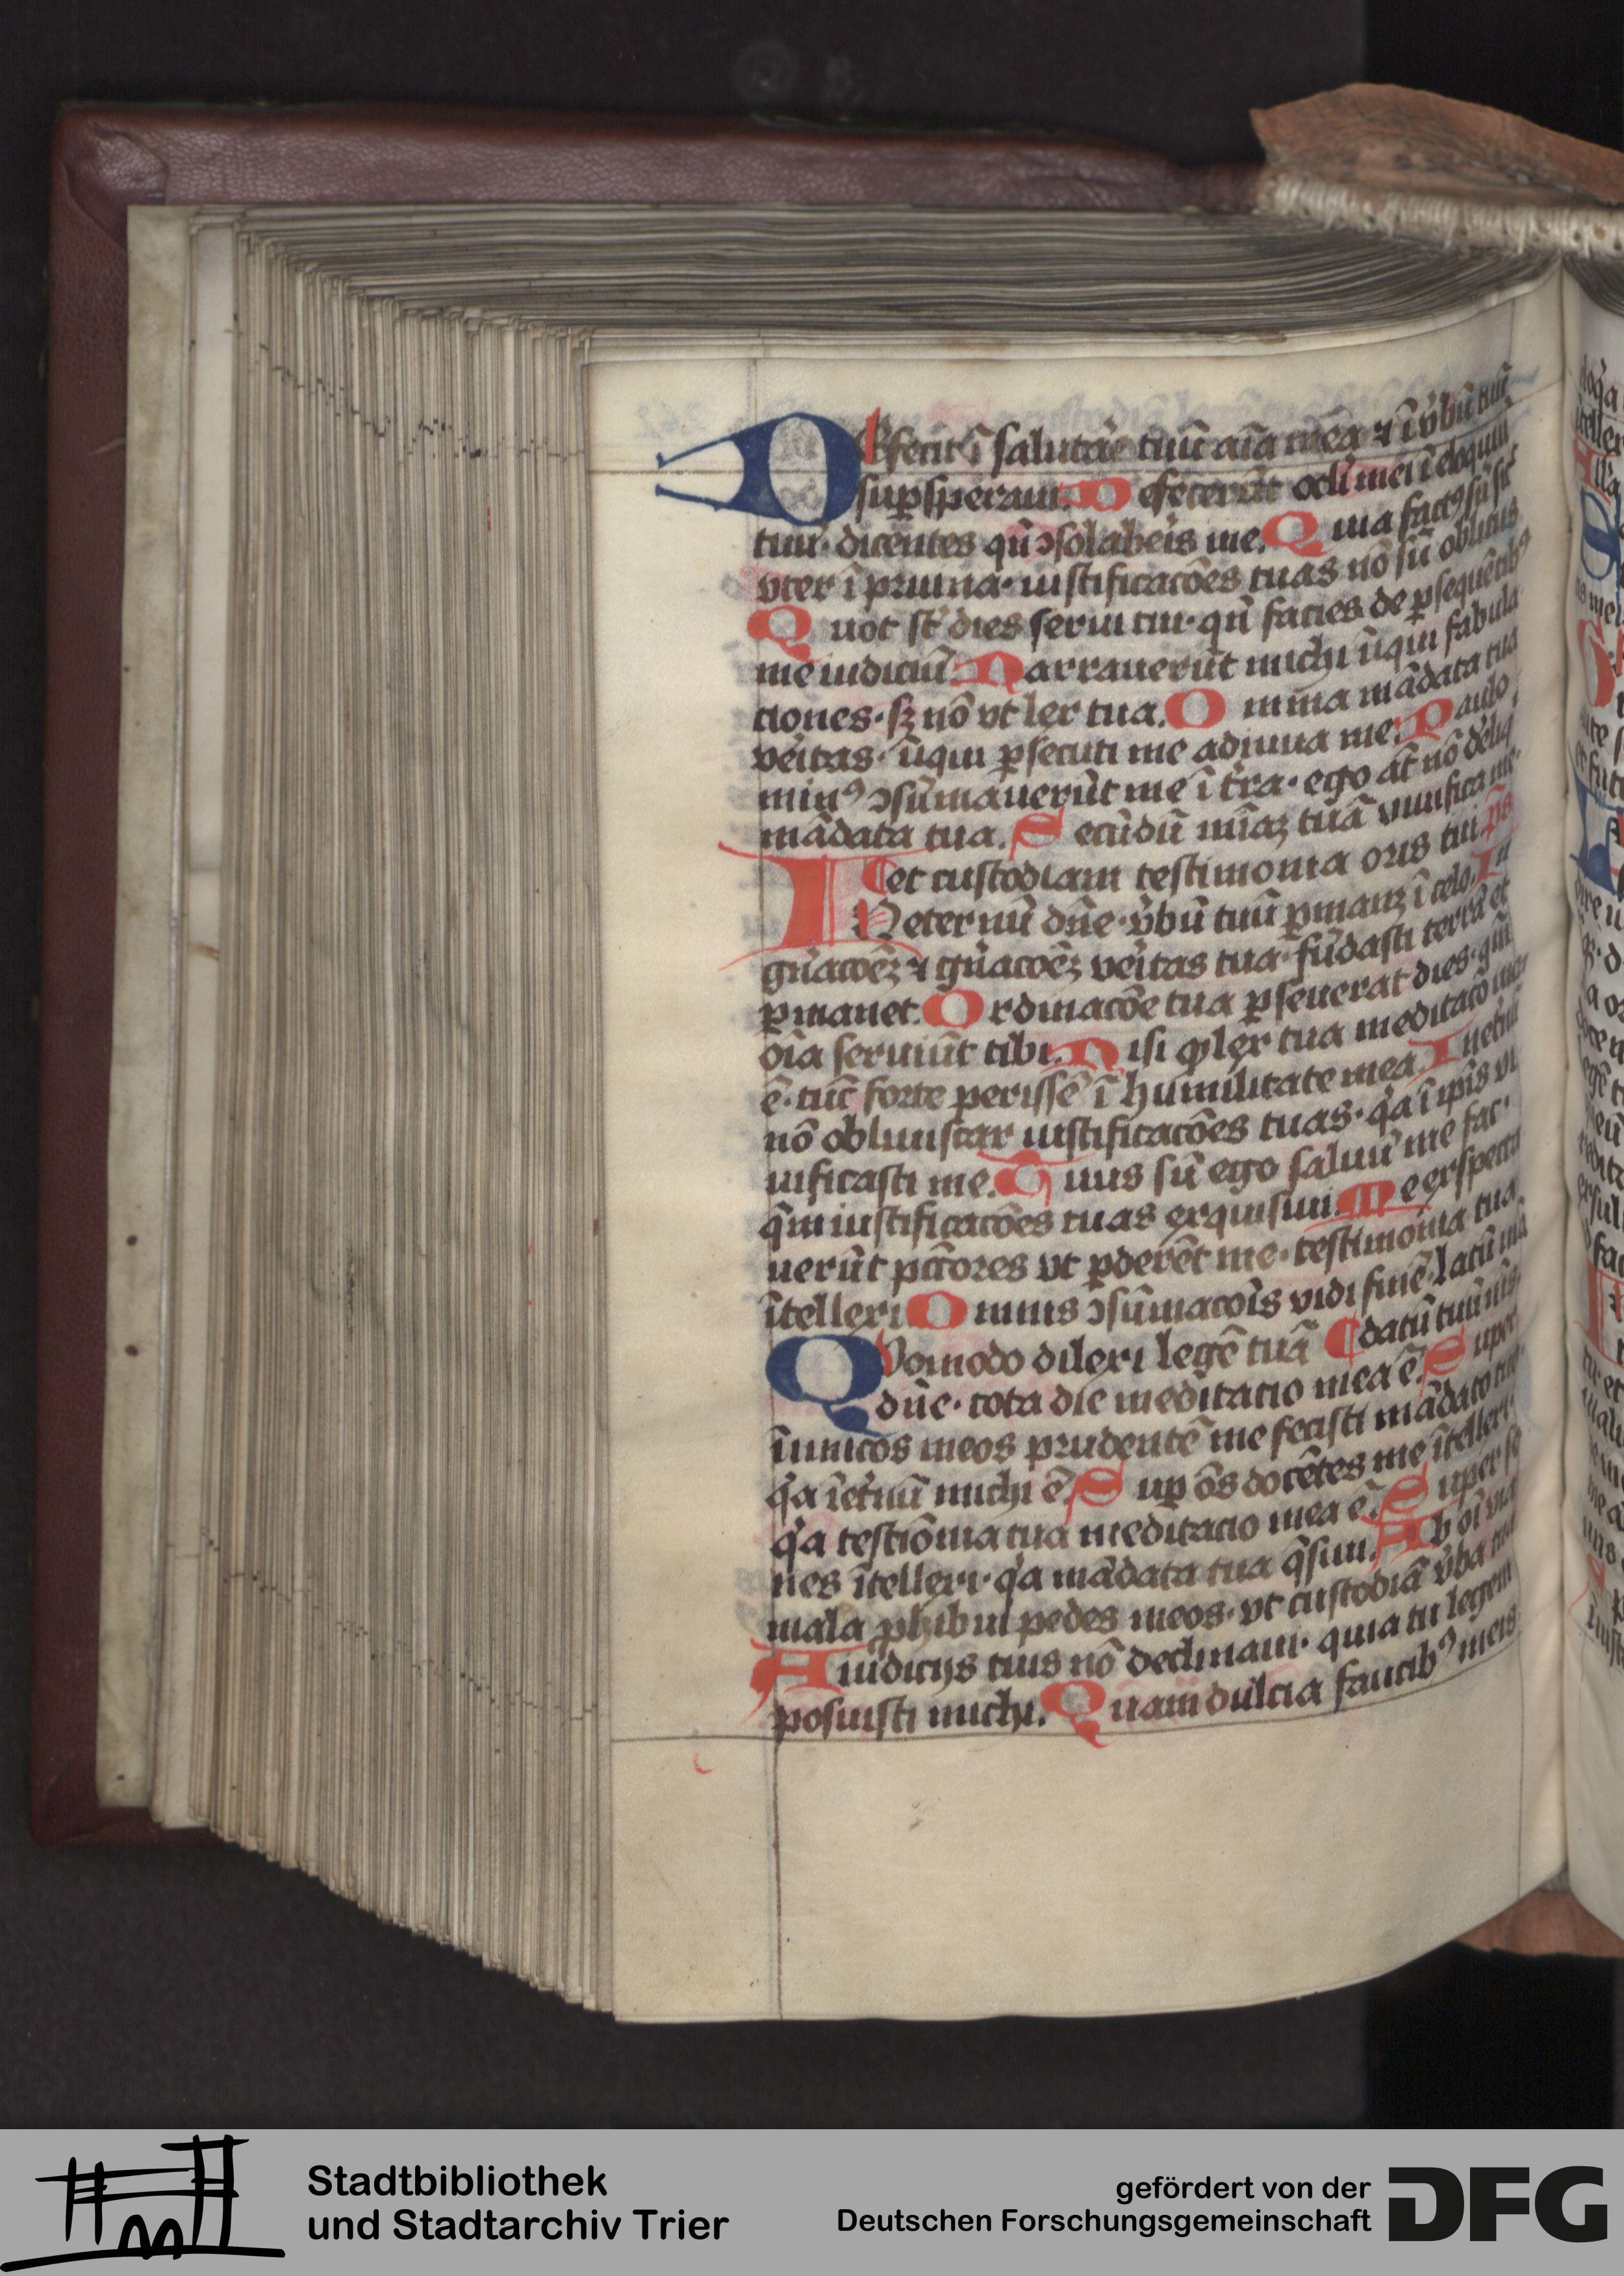 DEfecit ī salutāe tuū aīa mea ⁊ ī v̄bū tuū
suꝑsperaui. Defecerūt ocl̄i mei ī eloquiū
tuū· dicentes qn̄ ↄsolabeīs me. Quia factꝰ sū sic̄
vter ī pruina· iustificacōes tuas nō sū oblitus
Quot st̄ dies serui tui· qn̄ facies de ꝑsequētibꝰ
me iudiciū. Narrauerūt michi īiqui fabula
ciones· sꝫ nō vt lex tua. Omnia mādata tua
veītas· īiqui ꝑsecuti me adiuua me. Paulo
minꝰ ↄsūmauerūt me ī t̄ra· ego at̄ nō deliq̄
mādata tua. Secūdū mīaꝫ tuā viuifica me·
et custodiam testimonia oris tui ps̄
IN eternū dn̄e· v̄bū tuū ꝑmanꝫ ī celo. In
gn̄acōeꝫ ⁊ gn̄acōeꝫ veītas tua· fūdasti terrā et
ꝑmanet. Ordinacōe tua ꝑseuerat dies· qm̄
oīa seruiūt tibi. Nisi ꝙ lex tua meditacō mea
ē· tūc forte perissē ī humilitate mea. Inet̄nū
nō obliuiscar iustificacōes tuas· q̄a ī ip̄is vi
uificasti me. Tuus sū ego saluū me fac·
qm̄ iustificacōes tuas exquisiui. Me exspecta
uerūt pc̄tores vt ꝑderēt me· testimonia tua
ītellexi Omnis ↄsūmacōis vidi finē· latū mā
QVomodo dilexi legē tuā datū tuū nīs·
dn̄e· tota die meditatio mea ē. Super
īimicos meos prudentē me fecisti mādato tuo
q̄a īet̄nū michi ē. Suꝑ ōs docētes me ītellexi·
q̄a testiōnia tua meditatio mea ē. Super se
nes ītellexi· q̄a mādata tua q̄siui. Ab oī via
mala ꝓhibui pedes meos· vt custodiā v̄ba tua
A iudicijs tuis nō declinaui· quia tu legem
posuisti michi. Quam dulcia faucibꝰ meis
Stadtbibliothek
und Stadtarchiv Trier
gefördert von der
Deutschen Forschungsgemeinschaft
DFG